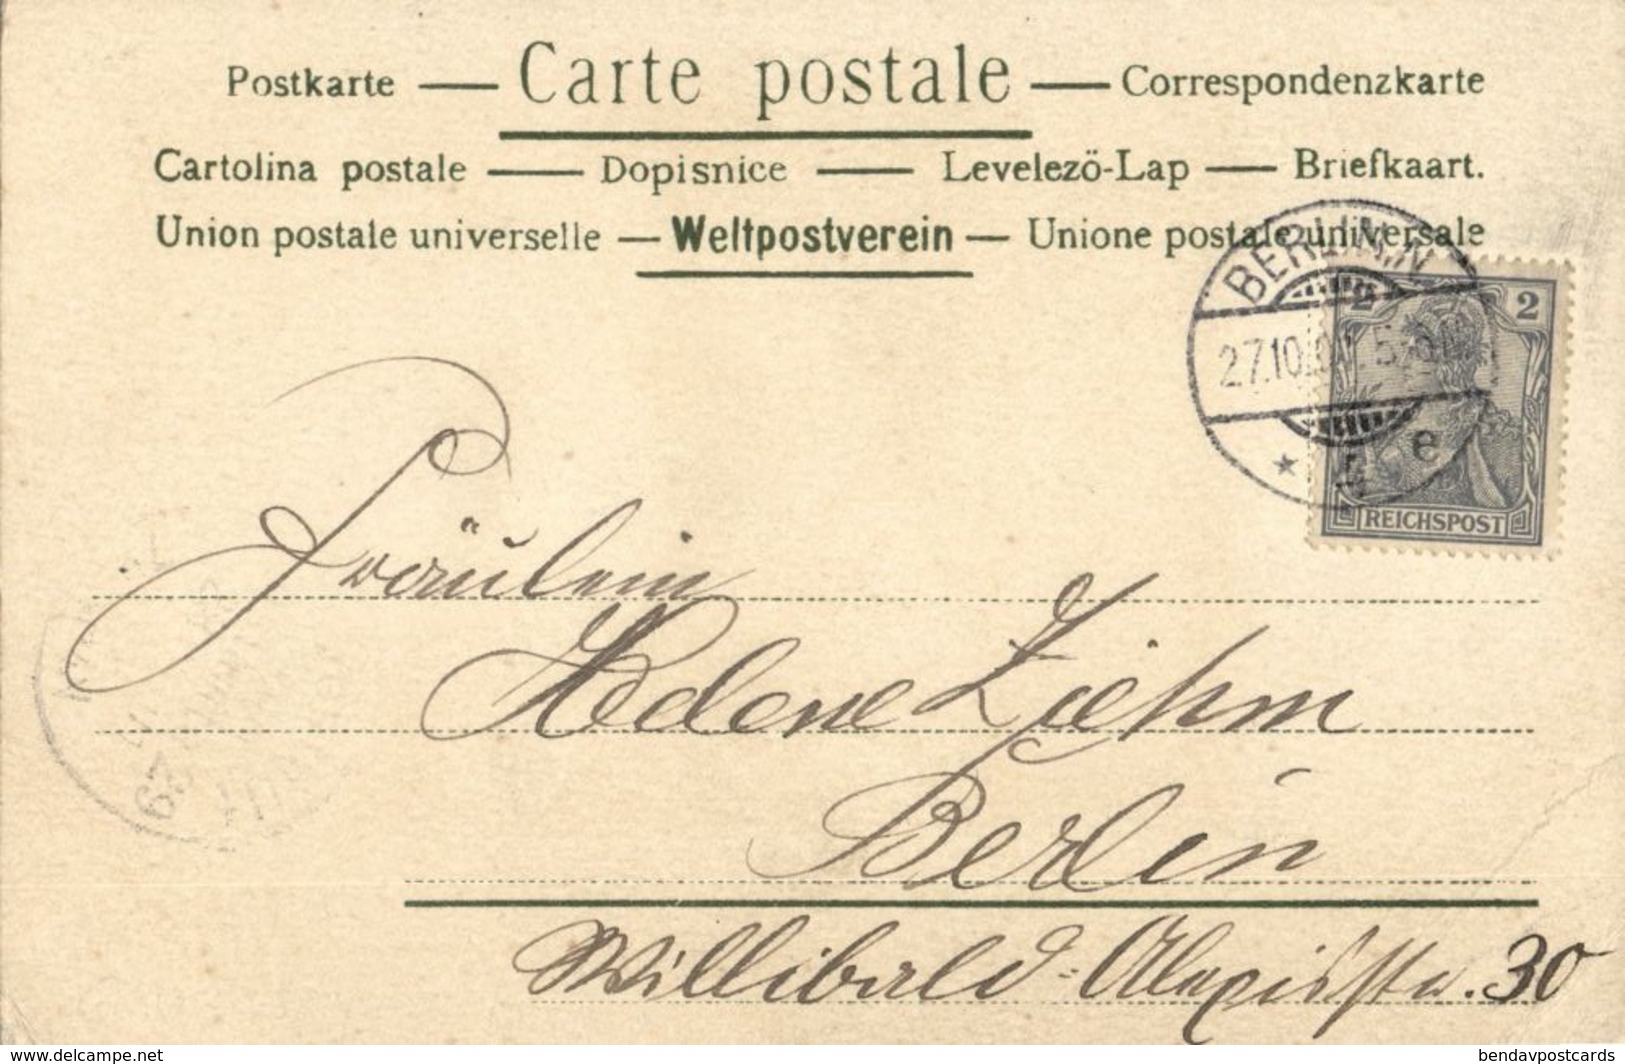 Postkarte — Carte postale — Correspondenzkarte
Cartolina postale — Dopisnice — Levelezö-Lap — Briefkaart.
Union postale universelle — Weltpostverein — Unione postale universale
BERLIN, N
2 2
27.10.
e
REICHSPOST
Fräulein
Helene Ziehm
Berlin
Willibald-Alexisstr. 30
www.delcampe.net
bendavpostcards